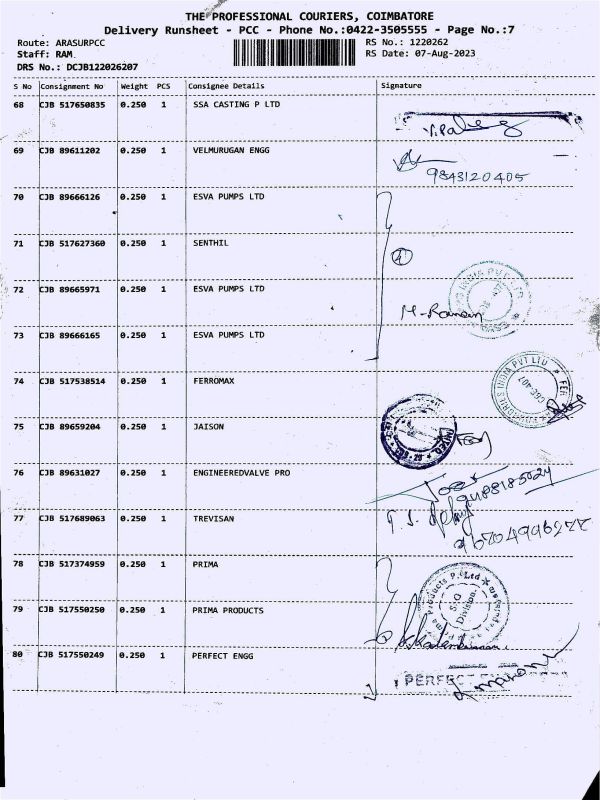 THE PROFESSIONAL COURIERS, COIMBATORE
Delivery Runsheet - PCC - Phone No.:0422-3505555 - Page No.:7
Route: ARASURPCC RS No.: 1220262
Staff: RAM. RS Date: 07-Aug-2023
DRS No.: DCJB122026207
S No Consignment No Weight PCS Consignee Details Signature
68 CJB 517650835 0.250 1 SSA CASTING P LTD
69 CJB 89611202 0.250 1 VELMURUGAN ENGG
9843120405
70 CJB 89666126 0.250 1 ESVA PUMPS LTD
71 CJB 517627360 0.250 1 SENTHIL
4
72 CJB 89665971 0.250 1 ESVA PUMPS LTD
73 CJB 89666165 0.250 1 ESVA PUMPS LTD
74 CJB 517538514 0.250 1 FERROMAX
INDIA PVT LTD
75 CJB 89659204 0.250 1 JAISON
76 CJB 89631027 0.250 1 ENGINEEREDVALVE PRO
77 CJB 517689063 0.250 1 TREVISAN
78 CJB 517374959 0.250 1 PRIMA
Products P. Ltd
Division
79 CJB 517550250 0.250 1 PRIMA PRODUCTS
80 CJB 517550249 0.250 1 PERFECT ENGG
PERFECT